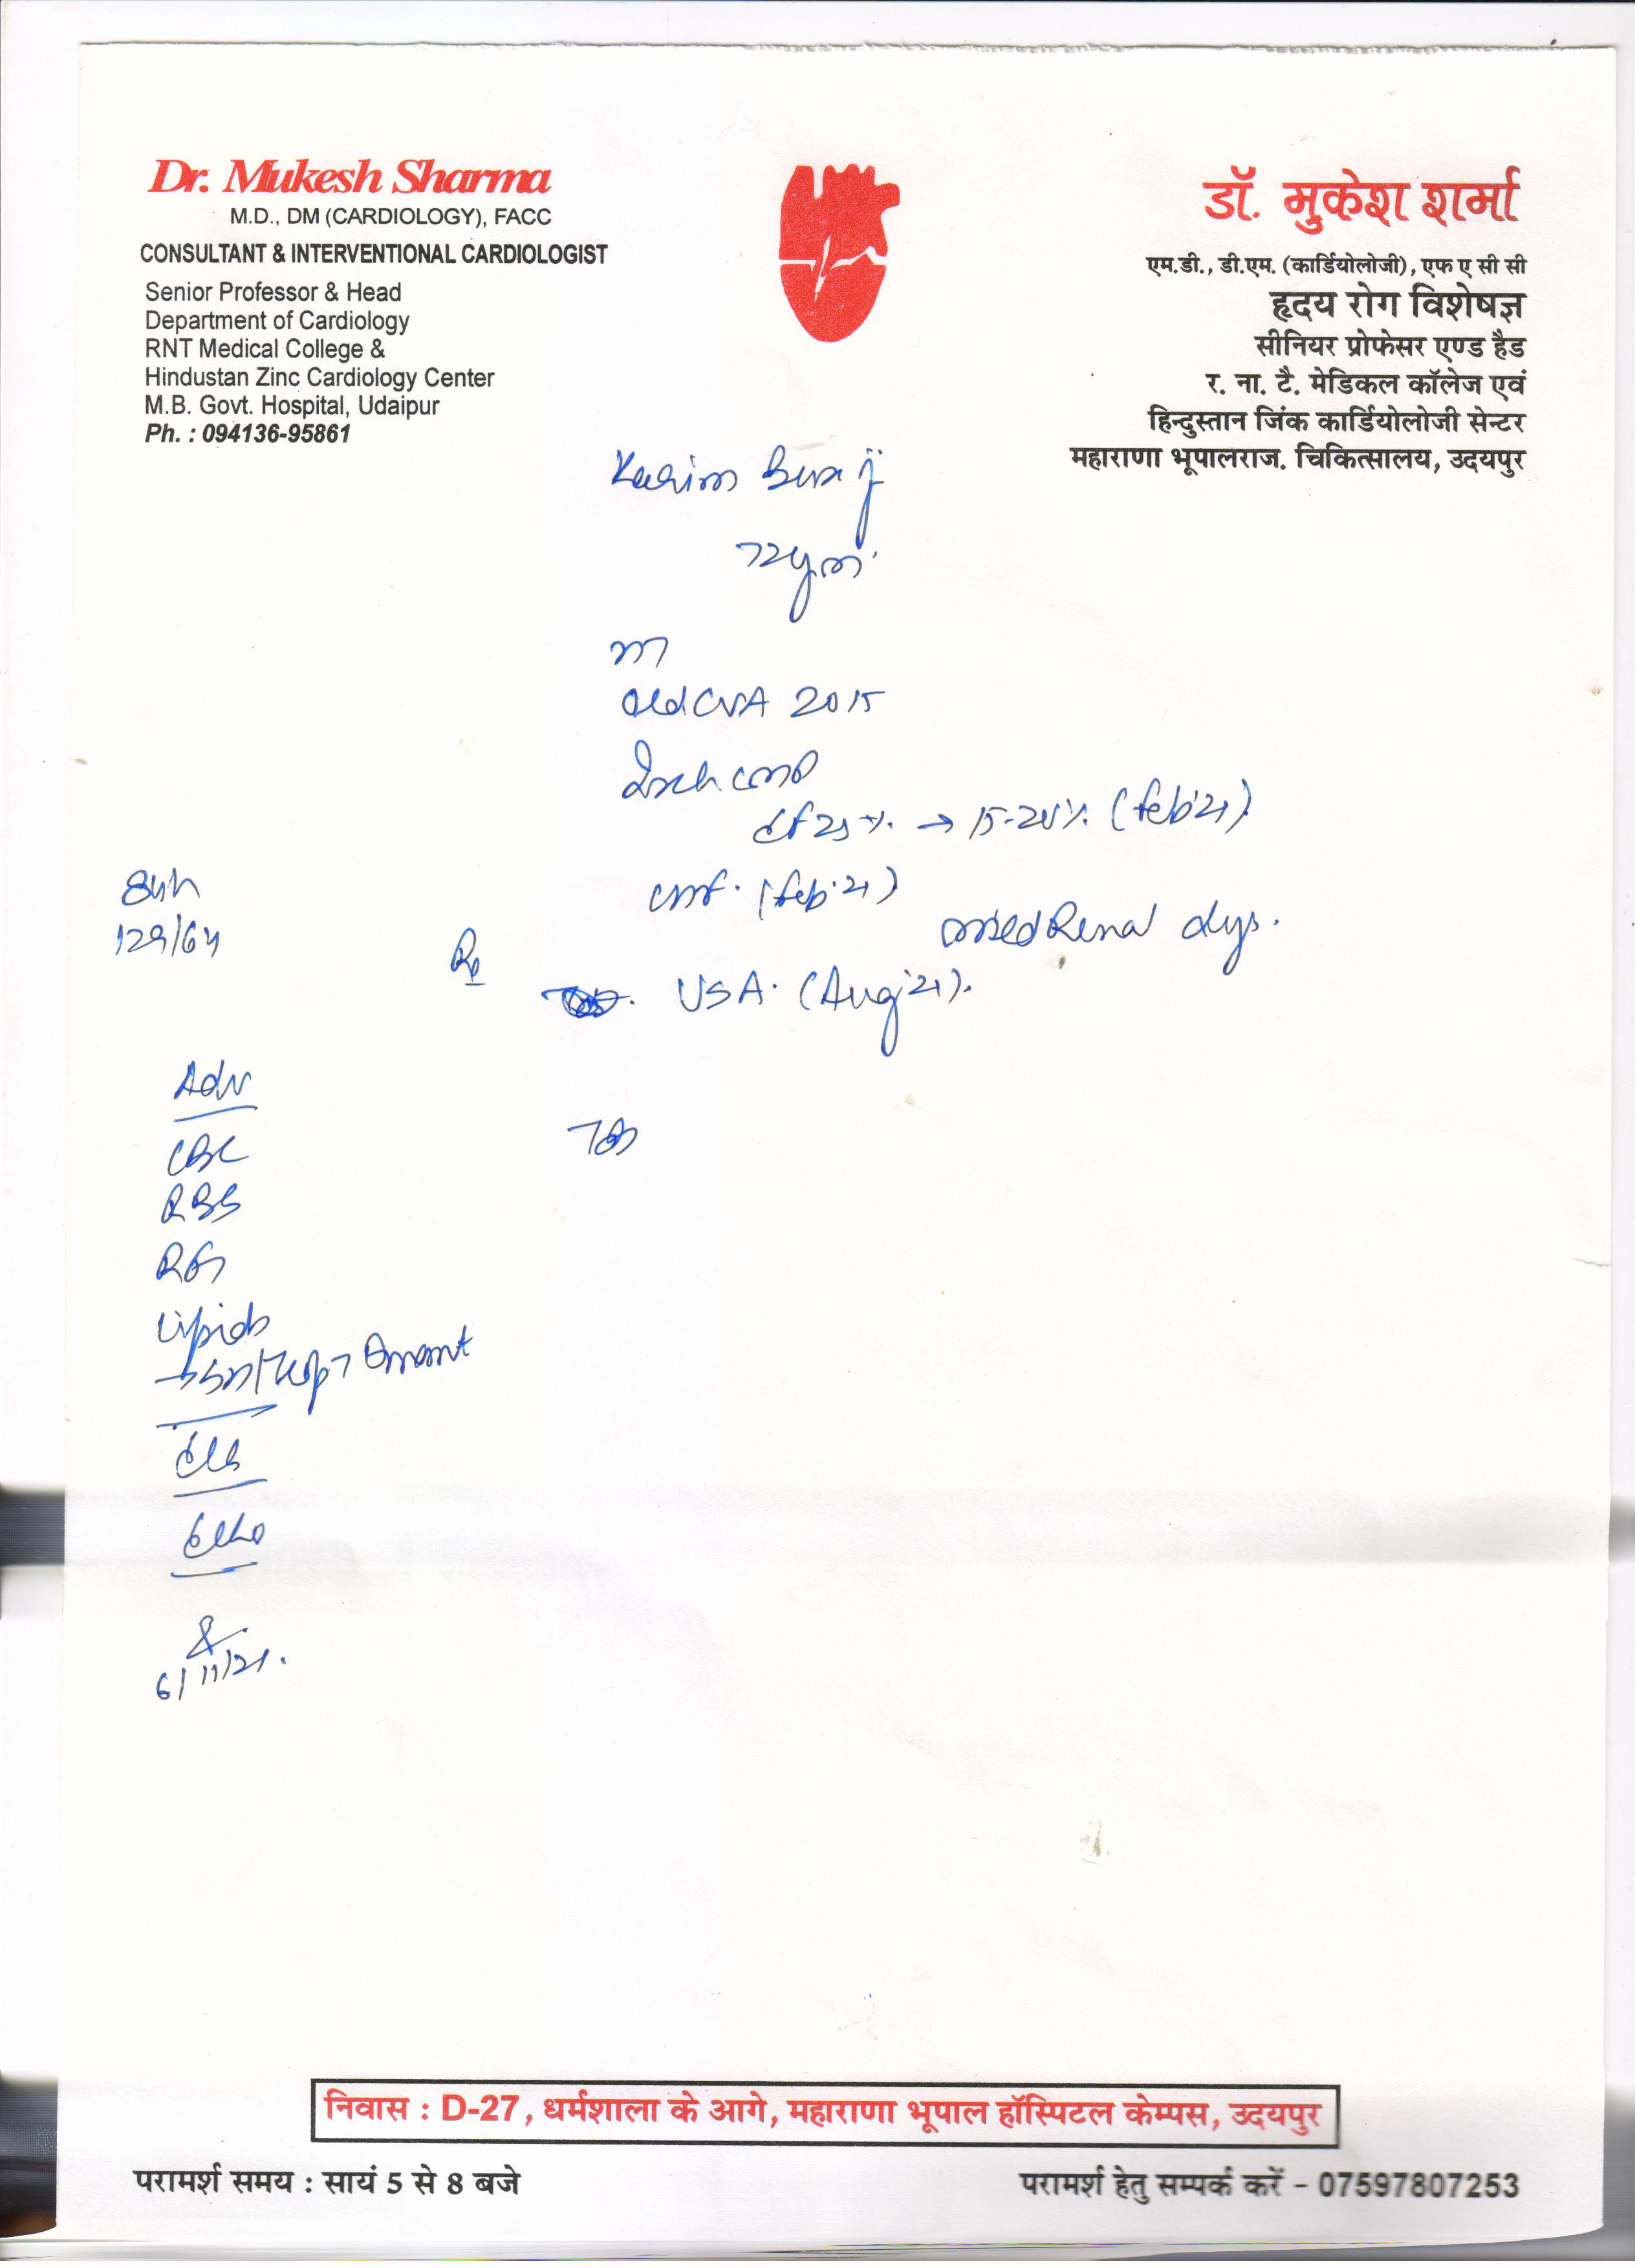 Dr. Mukesh Sharma
M.D., DM (CARDIOLOGY), FACC
CONSULTANT & INTERVENTIONAL CARDIOLOGIST
Senior Professor & Head
Department of Cardiology
RNT Medical College &
Hindustan Zinc Cardiology Center
M.B. Govt. Hospital, Udaipur
Ph. : 094136-95861
डॉ. मुकेश शर्मा
एम.डी., डी.एम. (कार्डियोलोजी), एफ ए सी सी
हृदय रोग विशेषज्ञ
सीनियर प्रोफेसर एण्ड हैड
र. ना. टै. मेडिकल कॉलेज एवं
हिन्दुस्तान जिंक कार्डियोलोजी सेन्टर
महाराणा भूपालराज. चिकित्सालय, उदयपुर
72y
Old CVA 2015
EF 25% → 15-20% (Feb'21)
(Feb'21)
Renal dys.
129/64
USA. (Aug'21).
Adv
CBC
RBS
Lipids
Echo
6/11/21.
निवास : D-27, धर्मशाला के आगे, महाराणा भूपाल हॉस्पिटल केम्पस, उदयपुर
परामर्श समय : सायं 5 से 8 बजे
परामर्श हेतु सम्पर्क करें - 07597807253